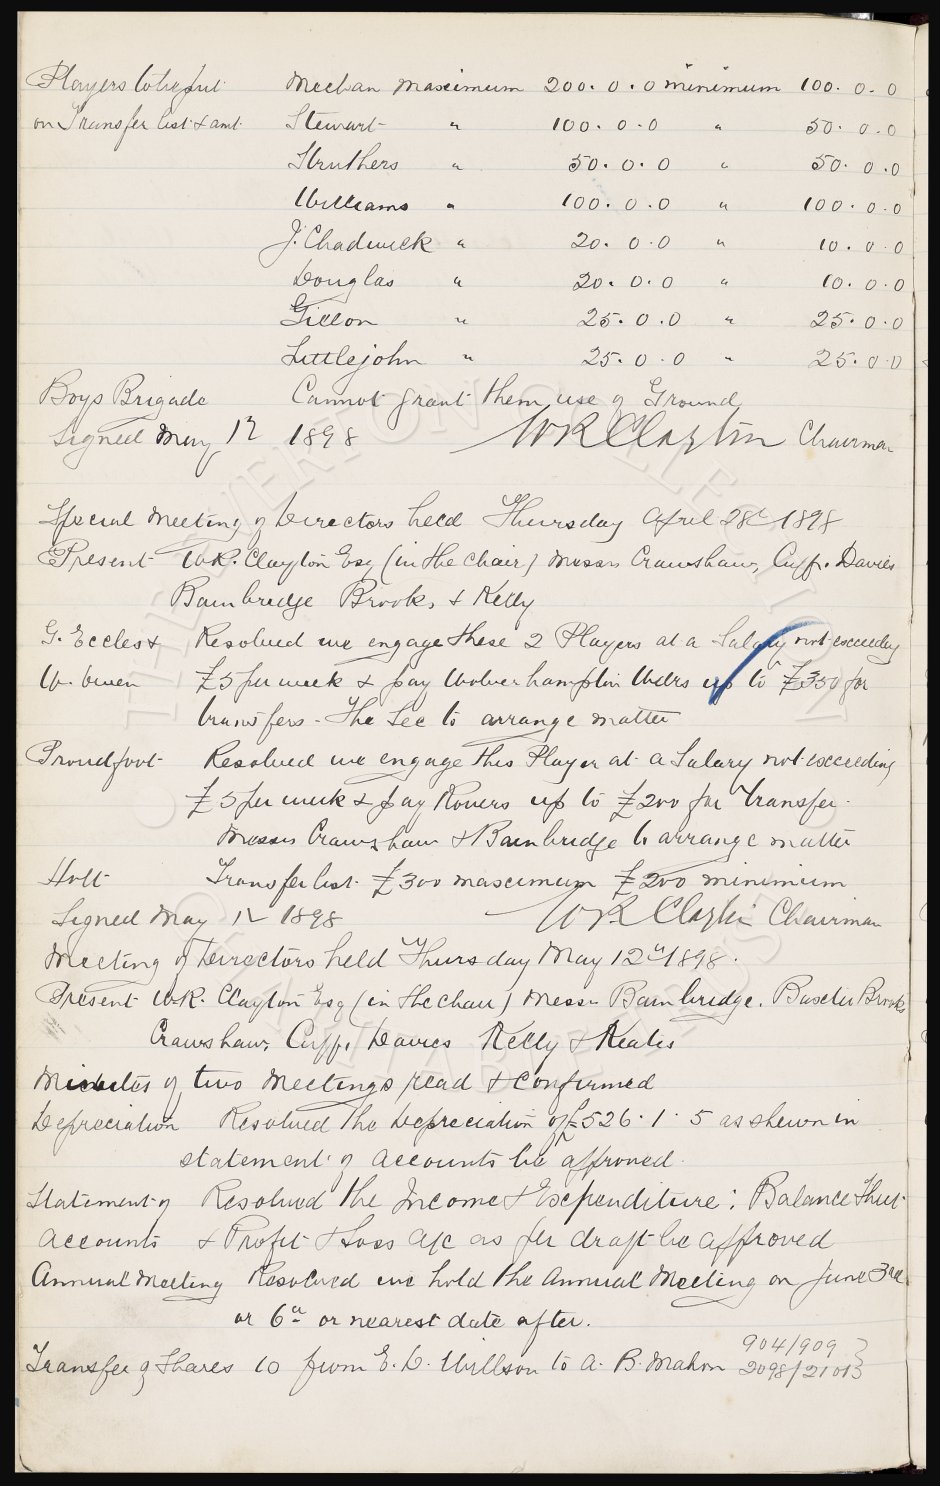 Players to be put Meehan Maximum 200. 0. 0 minimum 100. 0. 0
on Transfer list & amt. Stewart " 100. 0. 0 " 50. 0. 0
Struthers " 50. 0. 0 " 50. 0. 0
Williams " 100. 0. 0 " 100. 0. 0
J. Chadwick " 20. 0. 0 " 10. 0. 0
Douglas " 20. 0. 0 " 10. 0. 0
Gillon " 25. 0. 0 " 25. 0. 0
Littlejohn " 25. 0. 0 " 25. 0. 0
Boys Brigade Cannot grant them use of Ground
Signed May 12 1898 WR Clayton Chairman
Special Meeting of Directors held Thursday April 28th 1898
Present W.R. Clayton Esq (in the chair) Messrs Crawshaw, Cuff, Davies
Bainbridge Brooks, & Kelly
G. Eccles & Resolved we engage these 2 Players at a Salary not exceeding
W. Owen £5 per week & pay Wolverhampton Wdrs up to £350 for
transfers - The Sec to arrange matter
Proudfoot Resolved we engage this Player at a Salary not exceeding
£5 per week & pay Rovers up to £200 for transfer.
Messrs Crawshaw & Bainbridge to arrange matter
Holt Transfer list. £300 maximum £200 minimum
Signed May 12 1898 WR Clayton Chairman
Meeting of Directors held Thursday May 12th 1898.
Present W.R. Clayton Esq (in the chair) Messrs Bainbridge, Baxter Brooks
Crawshaw, Cuff, Davies Kelly & Keates
Minutes of two Meetings read & confirmed
Depreciation Resolved the Depreciation of £526. 1. 5 as shewn in
statement of accounts be approved.
Statement of Resolved the Income & Expenditure: Balance Sheet
Accounts & Profit & Loss a/c as per draft be approved
Annual Meeting Resolved we hold the Annual Meeting on June 3rd
or 6th or nearest date after.
904/909
Transfer of Shares 10 from E. D. Willson to A. B. Mahon 2098/2101